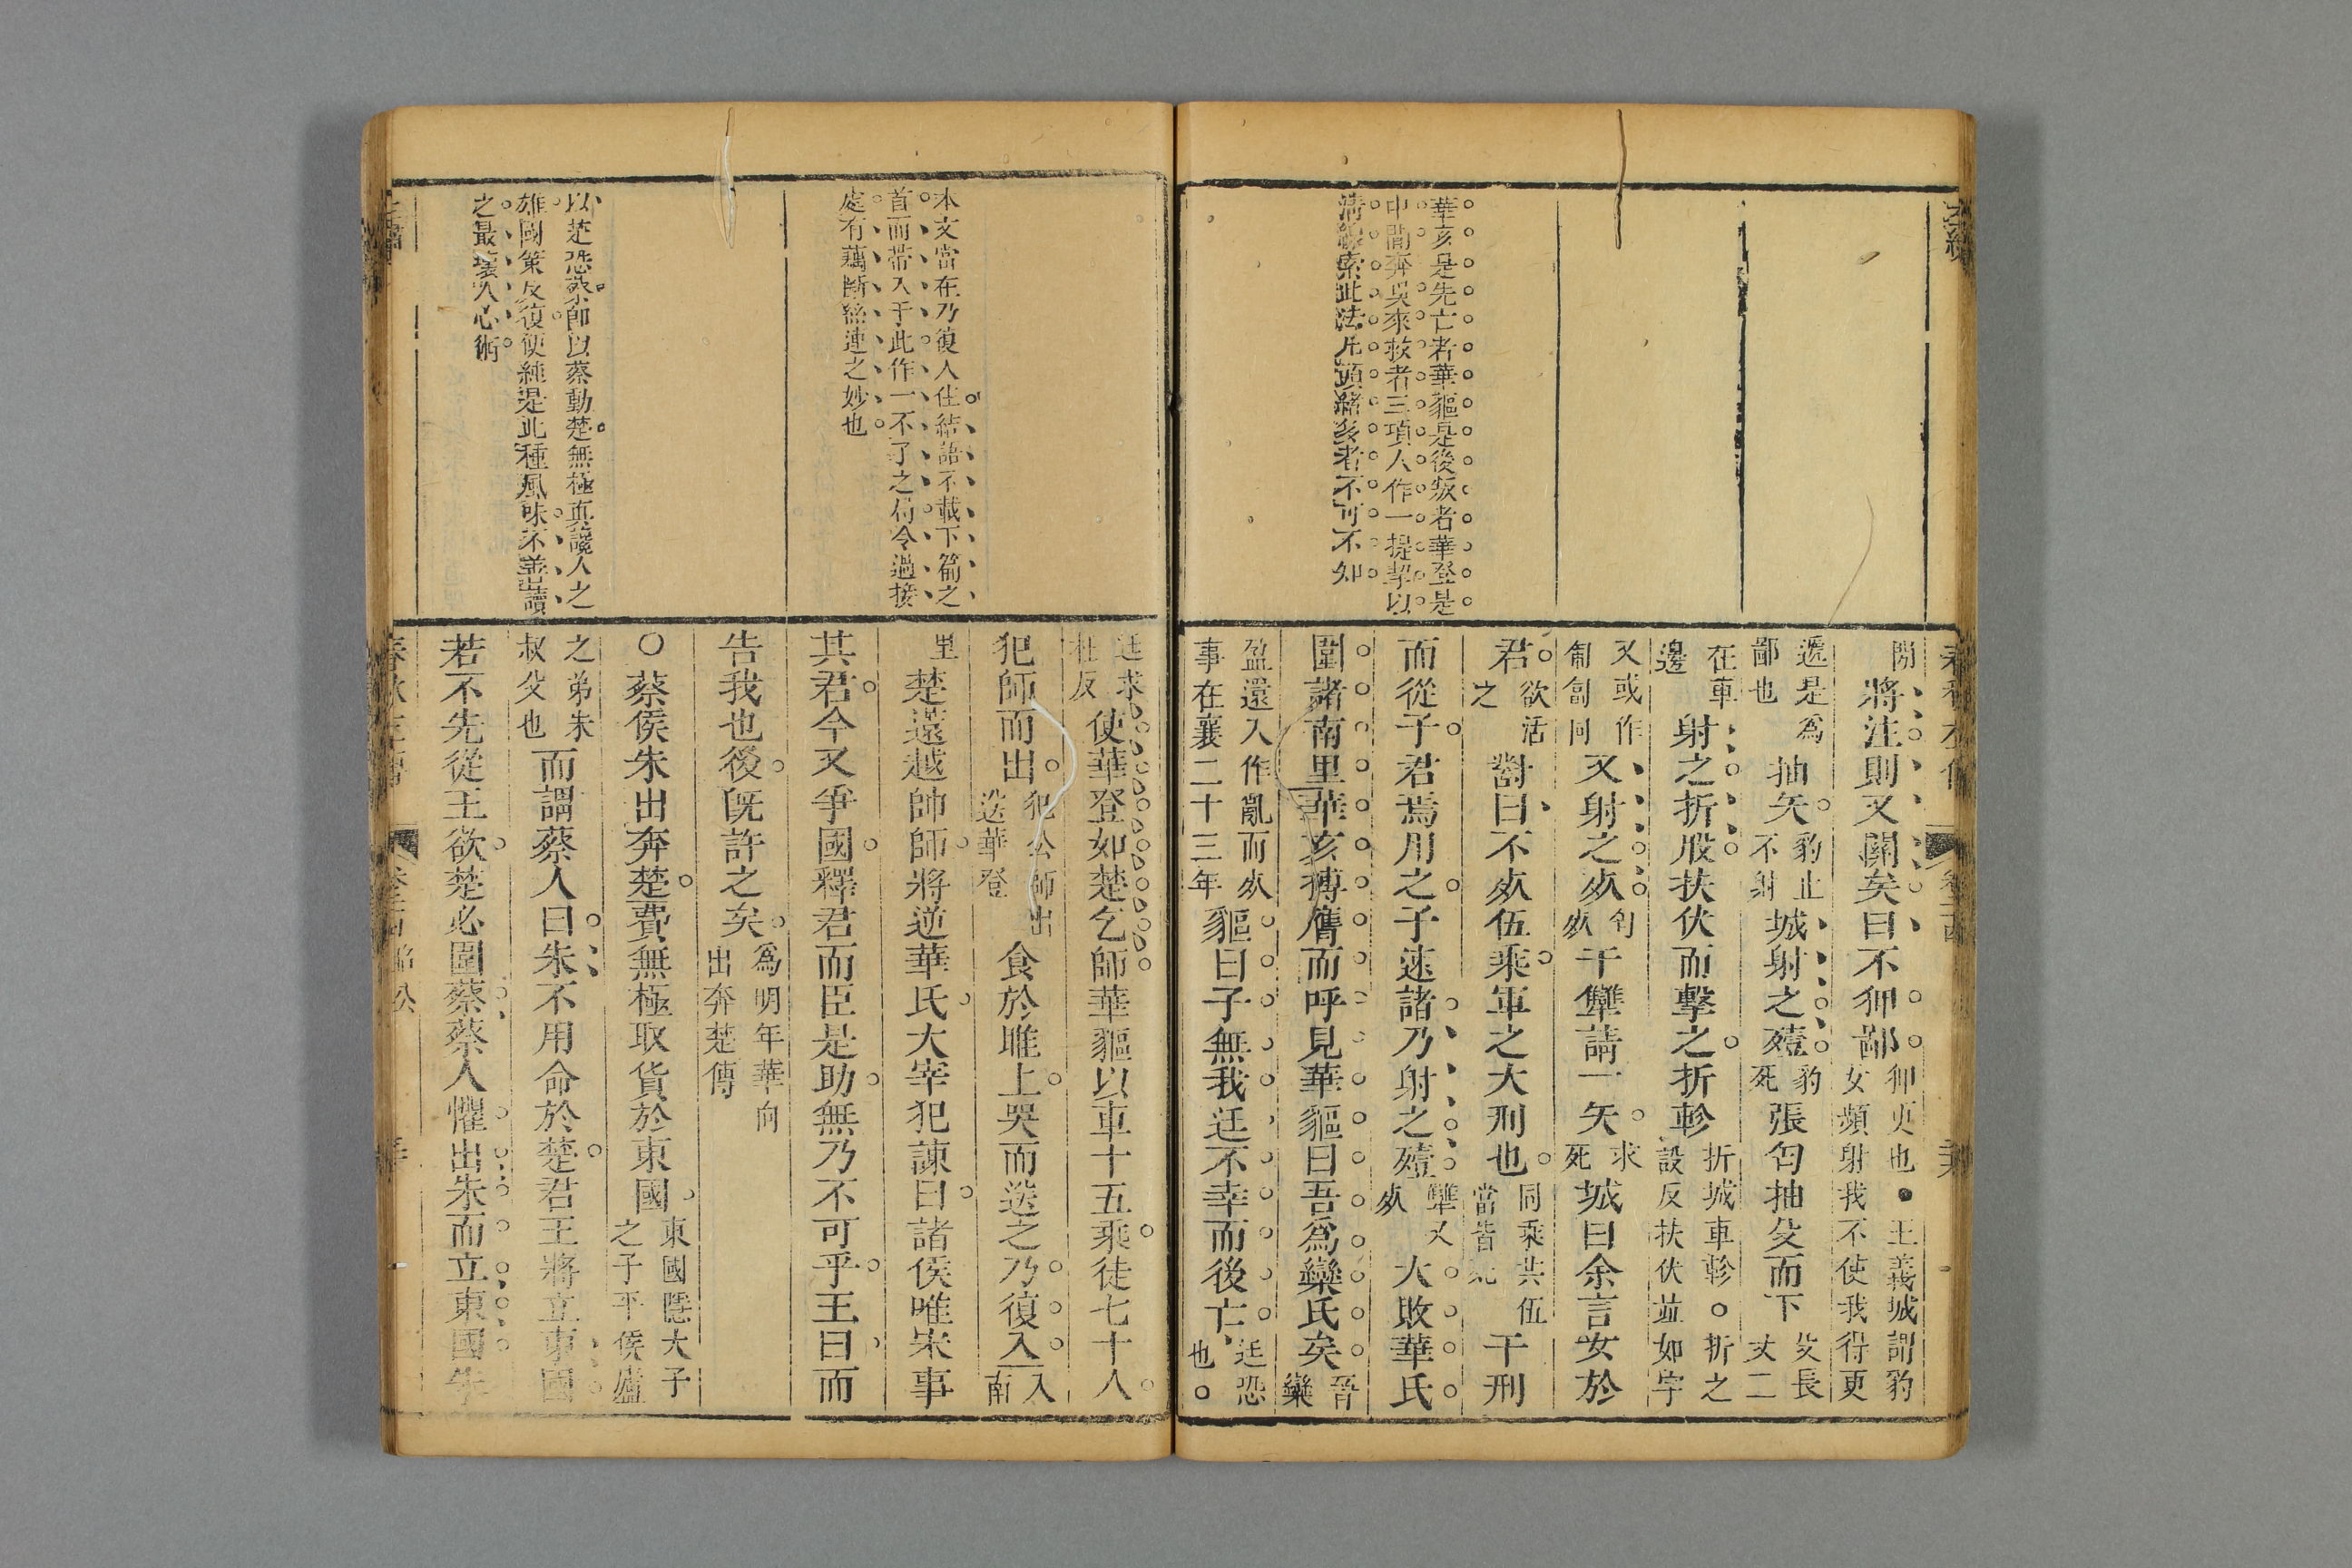 華亥是先亡者華貙是後叛者華登是
中間奔吳來救者三項人作一提挈以
清線索此法凡頭緒多者不可不知
關將注則又關矣曰不狎鄙狎更也●王義城謂豹
女頻射我不使我得更
遞是爲
鄙也抽矢豹止
不射城射之殪豹
死張匄抽殳而下殳長
丈二
在車
邊射之折股扶伏而擊之折軫折城車軫○折之
設反扶伏並如字
又或作
匍匐同又射之死匄
死干犨請一矢求
死城曰余言女於
君欲活
之對曰不死伍乘軍之大刑也同乘共伍
當皆死干刑
而從子君焉用之子速諸乃射之殪犨又
死大敗華氏
圍諸南里華亥搏膺而呼見華貙曰吾爲欒氏矣晉
欒
盈還入作亂而死
事在襄二十三年貙曰子無我迋不幸而後亡迋恐
也○
本文當在乃復入住結語不載下篇之
首而帶入于此作一不了之局令過接
處有藕斷絲連之妙也
以楚恐蔡卽以蔡動楚無極眞讒人之
雄國策反復便純是此種風味不善讀
之最壞人心術
迋求
枉反使華登如楚乞師華貙以車十五乘徒七十人
犯師而出犯公師出
送華登食於睢上哭而送之乃復入入
南
里楚薳越帥師將逆華氏大宰犯諫曰諸侯唯宋事
其君今又爭國釋君而臣是助無乃不可乎王曰而
告我也後旣許之矣爲明年華向
出奔楚傳
○蔡侯朱出奔楚費無極取貨於東國東國隱大子
之子平侯廬
之弟朱
叔父也而謂蔡人曰朱不用命於楚君王將立東國
若不先從王欲楚必圍蔡蔡人懼出朱而立東國朱